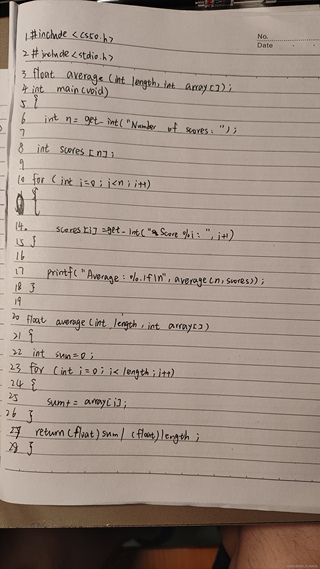 No.
Date
1. #include <cs50.h>
2 #include <stdio.h>
3 float average (int length, int array[]);
4 int main(void)
5 {
6 int n= get_int("Number of scores: ");
7
8 int scores[n];
9
10 for (int i=0; i<n; i++)
{
14. scores[i]=get_int("Score %i: ", i+1)
15 }
16
17 printf("Average: %.1f\n", average(n, scores));
18 }
19
20 float average (int length, int array[])
21 {
22 int sum=0;
23 for (int i=0; i<length; i++)
24 {
25 sum+= array[i];
26 }
27 return (float)sum/ (float)length;
28 }